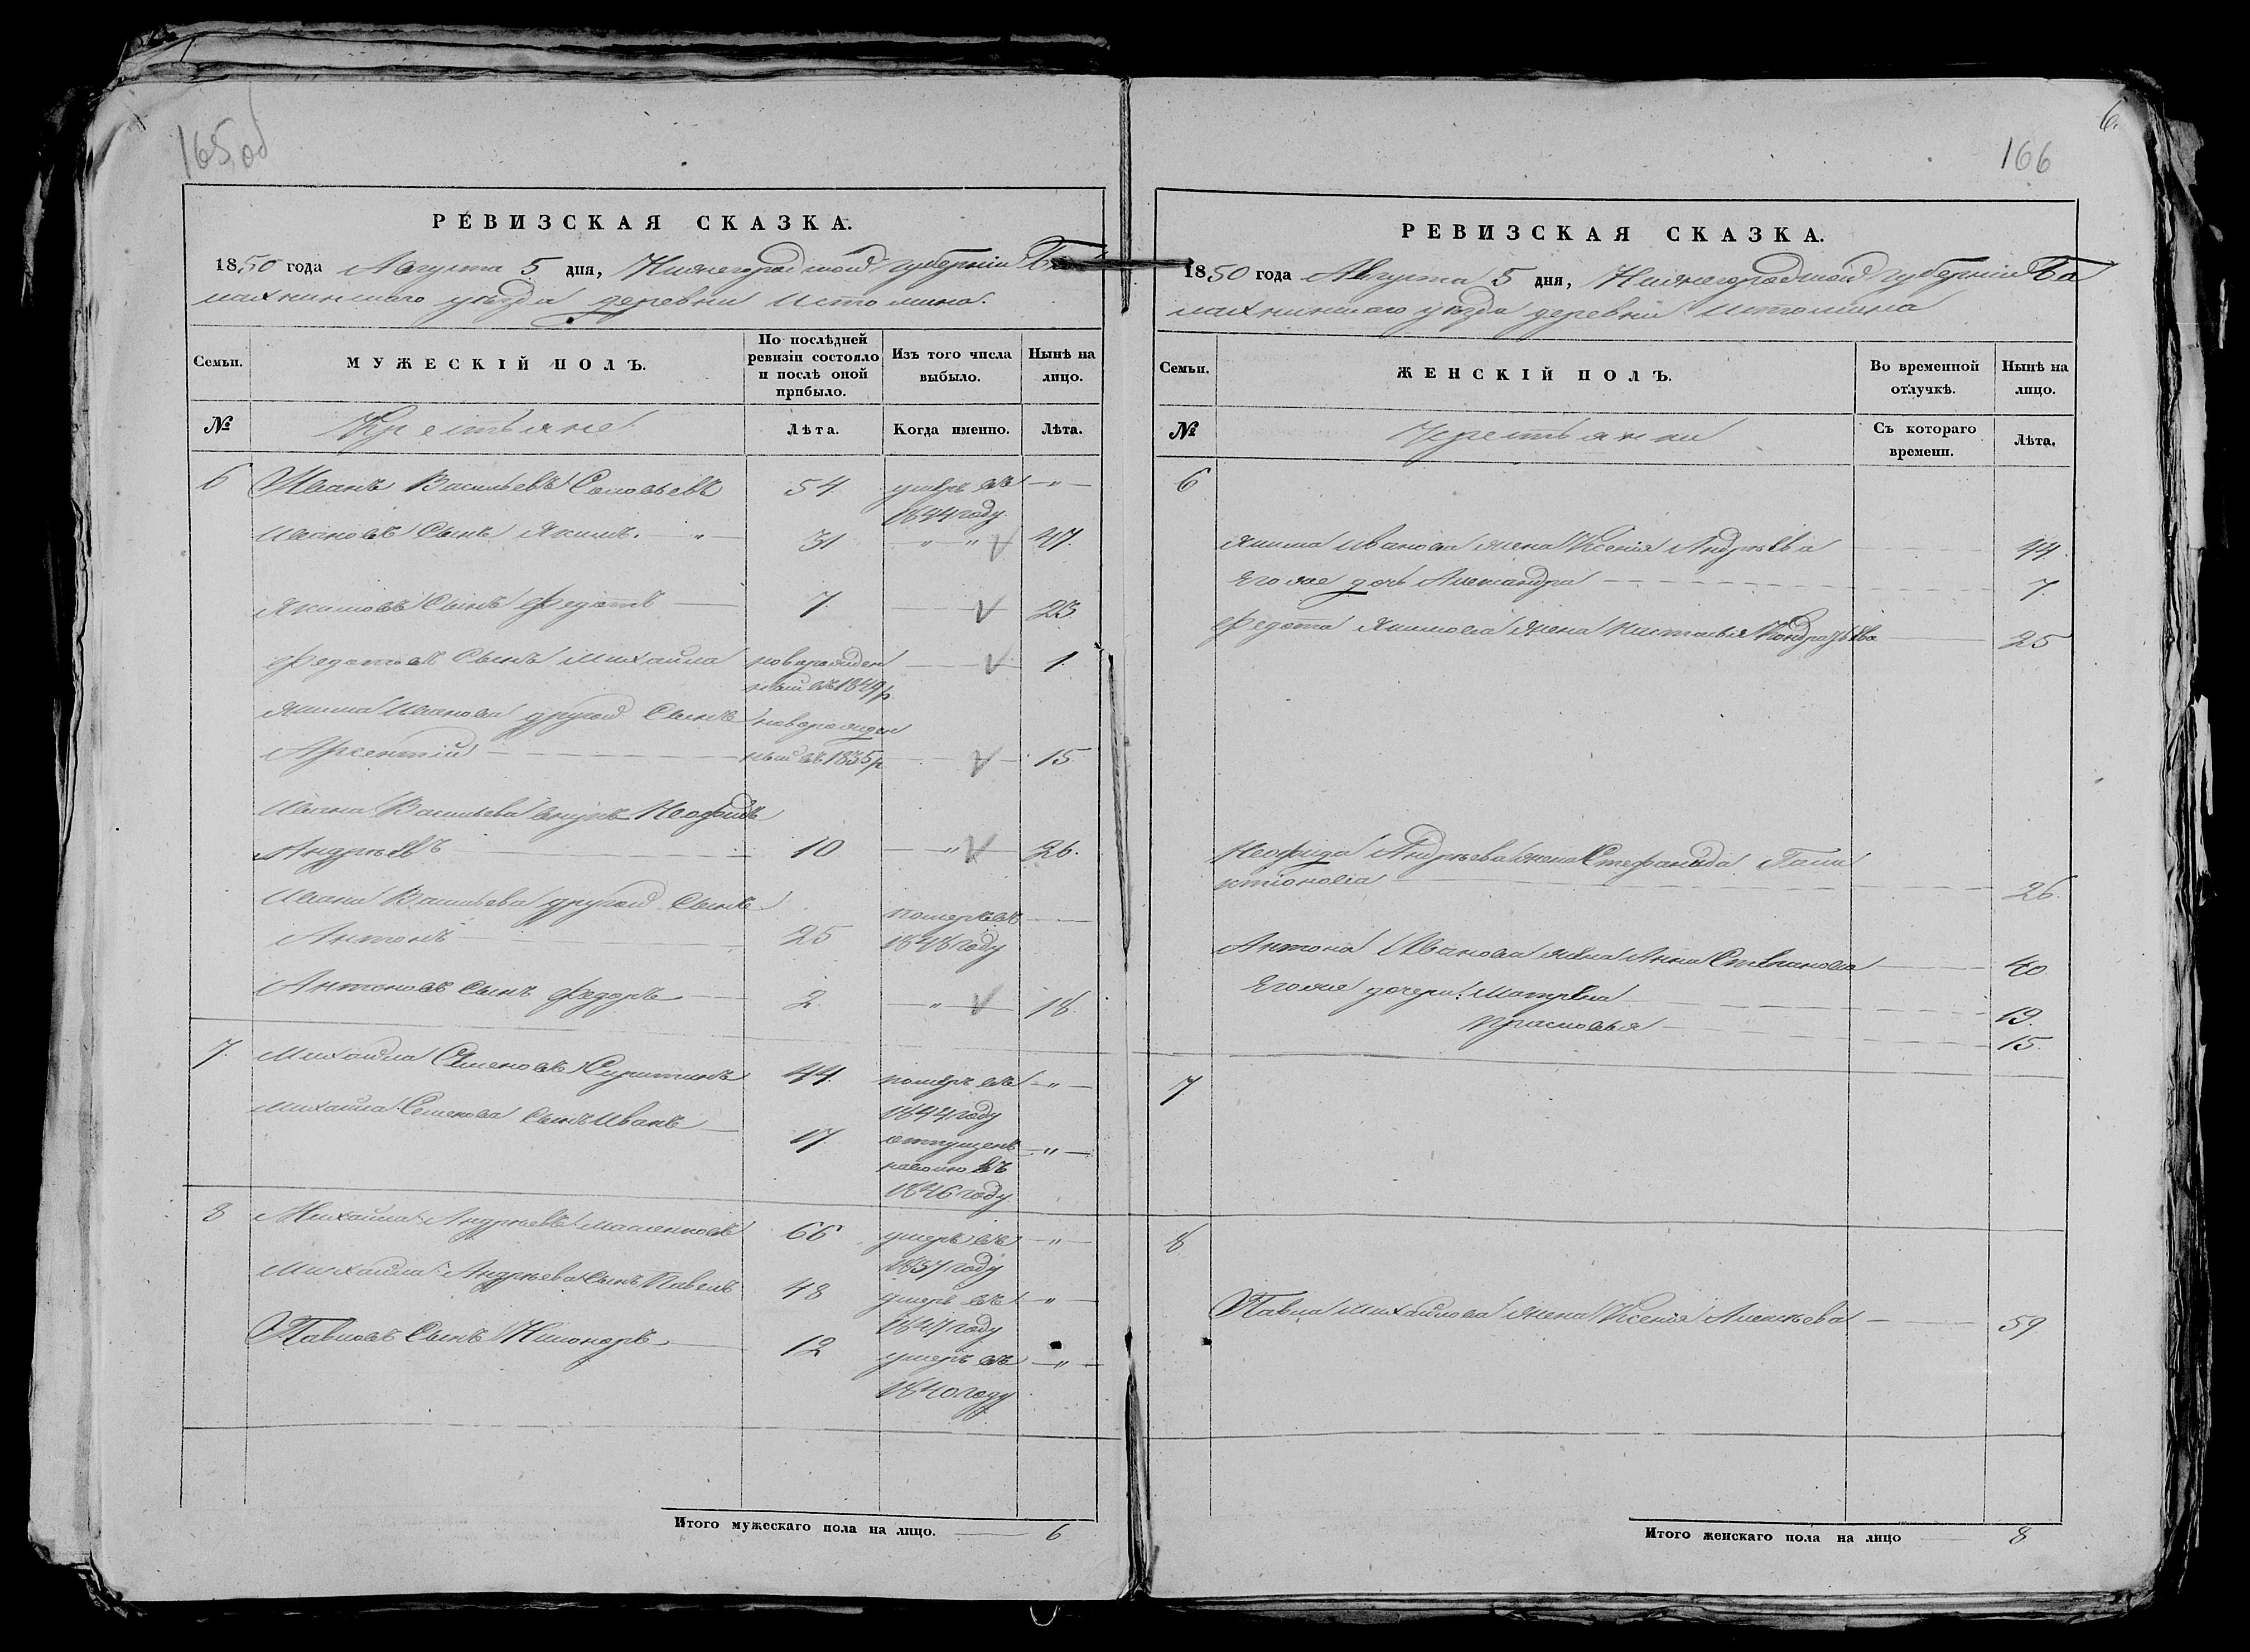 165 об
РЕВИЗСКАЯ СКАЗКА.
1850 года Августа 5 дня, Нижегородской губернии Ба
лахнинскаго уѣзда деревни Истомина.
Семьи. МУЖЕСКІЙ ПОЛЪ. По послѣдней ревизіи состояло и послѣ оной прибыло. Изъ того числа выбыло. Нынѣ на лицо.
№ Крестьяне Лѣта. Когда именно. Лѣта.
6 Иванъ Васильевъ Соловьевъ 54 умеръ въ 1844 году — " —
Ивановъ Сынъ Якимъ. " 31 " " 47.
Якимовъ Сынъ Федотъ 7. 23
Федотовъ Сынъ Михайла новорожден 1.
ный въ 1849 г
Якима Иванова другой Сынъ новорожден
Арсентій ный въ 1835 г 15
Ивана Васильева внукъ Неофидъ
Андрѣевъ 10 " 26.
Ивана Васильева другой Сынъ
Антонъ 25 померъ въ 1848 году
Антоновъ Сынъ Федоръ 2 " 18
7. Михайла Семеновъ 44 померъ въ 1844 году "
Михайла Семенова Сынъ Иванъ 17 отпущенъ на волю въ 1846 году "
8 Михайла Андрѣевъ 66 умеръ въ 1837 году "
Михайла Андрѣева Сынъ Павелъ 48 умеръ въ 1847 году "
Павловъ Сынъ Никоноръ 12 умеръ въ 1840 году "
Итого мужескаго пола на лицо. 6
6.
166
РЕВИЗСКАЯ СКАЗКА.
1850 года Августа 5 дня, Нижегородской губерніи Ба
лахнинскаго уѣзда деревни Истомина
Семьи. ЖЕНСКІЙ ПОЛЪ. Во временной отлучкѣ. Нынѣ на лицо.
№ Крестьянки Съ котораго времени. Лѣта.
6
Якима Иванова жена Ксенія Андрѣева 44.
Его же дочь Александра 7.
Федота Якимова жена Настасья Кондратьева 25
Неофида Андрѣева жена Стефанида Гала
ктіонова 26.
Антона Иванова жена Анна Степанова 40
Его же дочери: Матрена 19.
Прасковья 15.
7
8
Павла Михайлова жена Ксенія Алексѣева 59
Итого женскаго пола на лицо 8